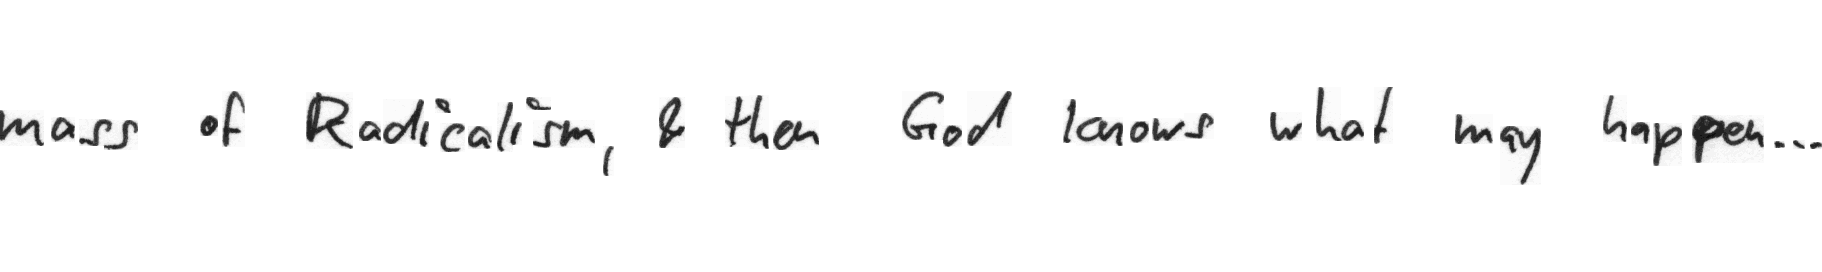 mass of Radicalism, & then God knows what may happen...